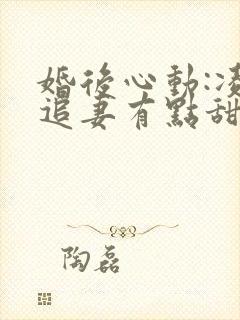 婚後心動:凌
追妻有點甜
陶磊